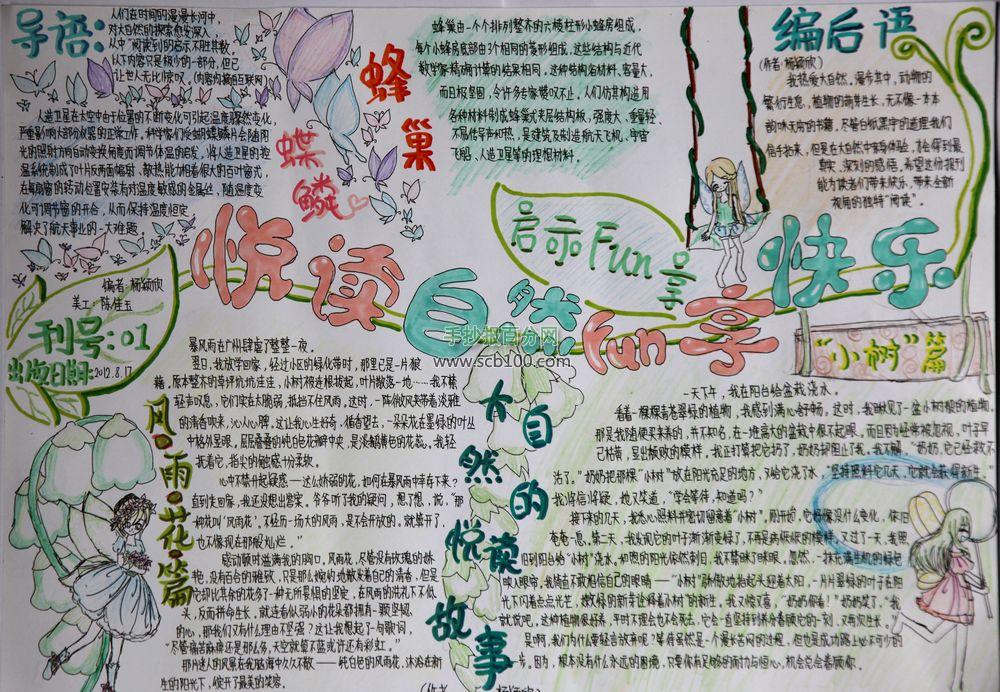 导语:
人们在时间的漫漫长河中,
对大自然的探索愈发深入,
从中“阅读”到的启示不胜枚数。
以下内容只是极少的一部分,但已
让世人无比惊叹。(内容均摘自互联网)
人造卫星在太空中由于位置的不断变化可引起温度骤然变化,
严重影响大部分仪器的正常工作。科学家们受蝴蝶鳞片会随阳
光的照射方向自动变换角度而调节体温的启发,将人造卫星的控
温系统制成了叶片反两面辐射、散热能力相差很大的百叶窗式,
在每扇窗的转动位置安装有对温度敏感的金属丝,随温度变
化可调节窗的开合,从而保持温度恒定,
解决了航天事业的一大难题。
蝶鳞
蜂巢
蜂巢由一个个排列整齐的六棱柱形小蜂房组成,
每个小蜂房底部由3个相同的菱形组成,这些结构与近代
数学家精确计算的结果相同。这种结构省材料,容量大,
而且极坚固,令许多专家赞叹不止。人们仿其构造用
各种材料制成蜂巢式夹层结构板,强度大、重量轻
不易传导声和热,是建筑及制造航天飞机,宇宙
飞船、人造卫星等的理想材料。
编后语
(作者:杨颖欣)
我热爱大自然。漫步其中,动物的
繁衍生息,植物的萌芽生长,无不像一本本
韵味无穷的书籍。尽管白纸黑字的道理我们
信手拈来,但是在大自然中亲身体验,才能得到最
真实、深刻的感悟。希望这份报刊
能为读者们带来快乐,带来全新
视角的独特“阅读”。
启示Fun享
悦读自然 fun享快乐
编者:杨颖欣
美工:陈佳玉
刊号:01
出版日期:2012.8.17
手抄报百分网
www.scb100.com
“小树”篇
风·雨·花·篇
暴风雨在广州肆虐了整整一夜。
翌日,我放学回家,经过小区的绿化带时,那里已是一片狼
藉,原本整齐的草坪坑坑洼洼,小树被连根拔起,叶片散落一地……我不禁
轻声叹息,它们实在太脆弱,抵挡不住风雨。这时,一阵微风夹带着淡雅
的清香吹来,沁人心脾。这让我心生好奇,循香望去,一朵朵花在墨绿的叶丛
中格外显眼,层层叠叠的纯白色花瓣中央,是淡鹅黄色的花蕊。我轻
抚着它,指尖的触感十分柔软。
心中不禁升起疑惑——这么娇弱的花,如何在暴风雨中幸存下来?
直到走回家,我还没想出答案。爷爷听了我的疑问,想了想,说,“那
种花叫‘风雨花’,不经历一场大的风雨,是不会开放的。就算开了,
也不像现在那般灿烂。”
感动顿时溢满我的胸口。风雨花,尽管没有玫瑰的娇
艳,没有百合的雅致,只是那么娴的地散发着自己的清香,但是
它却比其余的花多了一种无所畏惧的坚定,在风雨的洗礼下不低
头,反而拼命生长,就连看似弱小的花朵都拥有一颗坚韧
的心,那我们又有什么理由不坚强?这让我想起了一句歌词,
“尽管痛苦麻痹还是那么伤,天空就算不蓝或许还有彩虹。”
那片迷人的风景在我脑海中久久不散——纯白色的风雨花,沐浴在新
生的阳光下,绽开了最美的笑容。
大自然的悦读故事
一天下午,我在阳台给盆栽浇水。
看着一棵棵青苍翠绿的植物,我感到满心好畅。这时,我瞅见了一盆小树模的植物,
那是我随便买来养的,并不知名,在一堆高大的盆栽中很不起眼。而且因经常被忽视,叶子早
已枯黄,显出颓败的模样。我正打算把它扔了,奶奶却阻止了我。我不解,“奶奶,它已经救不
活了。”奶奶把那棵“小树”放在阳光充足的地方,又给它浇了水,“坚持照料它几天,它就会获得新生。”
我将信将疑,她又笑道,“学会等待,知道吗?”
接下来的几天,我悉心照料并密切留意着“小树”。刚开始,它好像没什么变化,依旧
奄奄一息。第二天,我发现它的叶子渐渐变绿了,不再是病恹恹的模样。又过了一天,我照
旧到阳台给“小树”浇水。和煦的阳光依然刺目,我不禁眯了眯眼。忽然,一抹充满生机的绿色
映入眼帘,我简直不敢相信自己的眼睛——“小树”骄傲地抬起头迎着太阳,一片片翠绿的叶子在阳
光下闪着点点光芒,嫩绿的新芽诠释着小树”的新生。我又惊又喜,“奶奶你看!”奶奶笑了,“我
就说吧,这种植物很好养,平时不理会也不会死去。它会一直坚持到养分眷顾它的一刻,又再次生长。”
是啊,我们为什么要轻言放弃呢?等待虽然是一个漫长苦闷的过程,但也是成功路上必不可少的
一步。因为,根本没有什么永远的困境,只要你有足够的耐力与恒心,机会总会眷顾你。